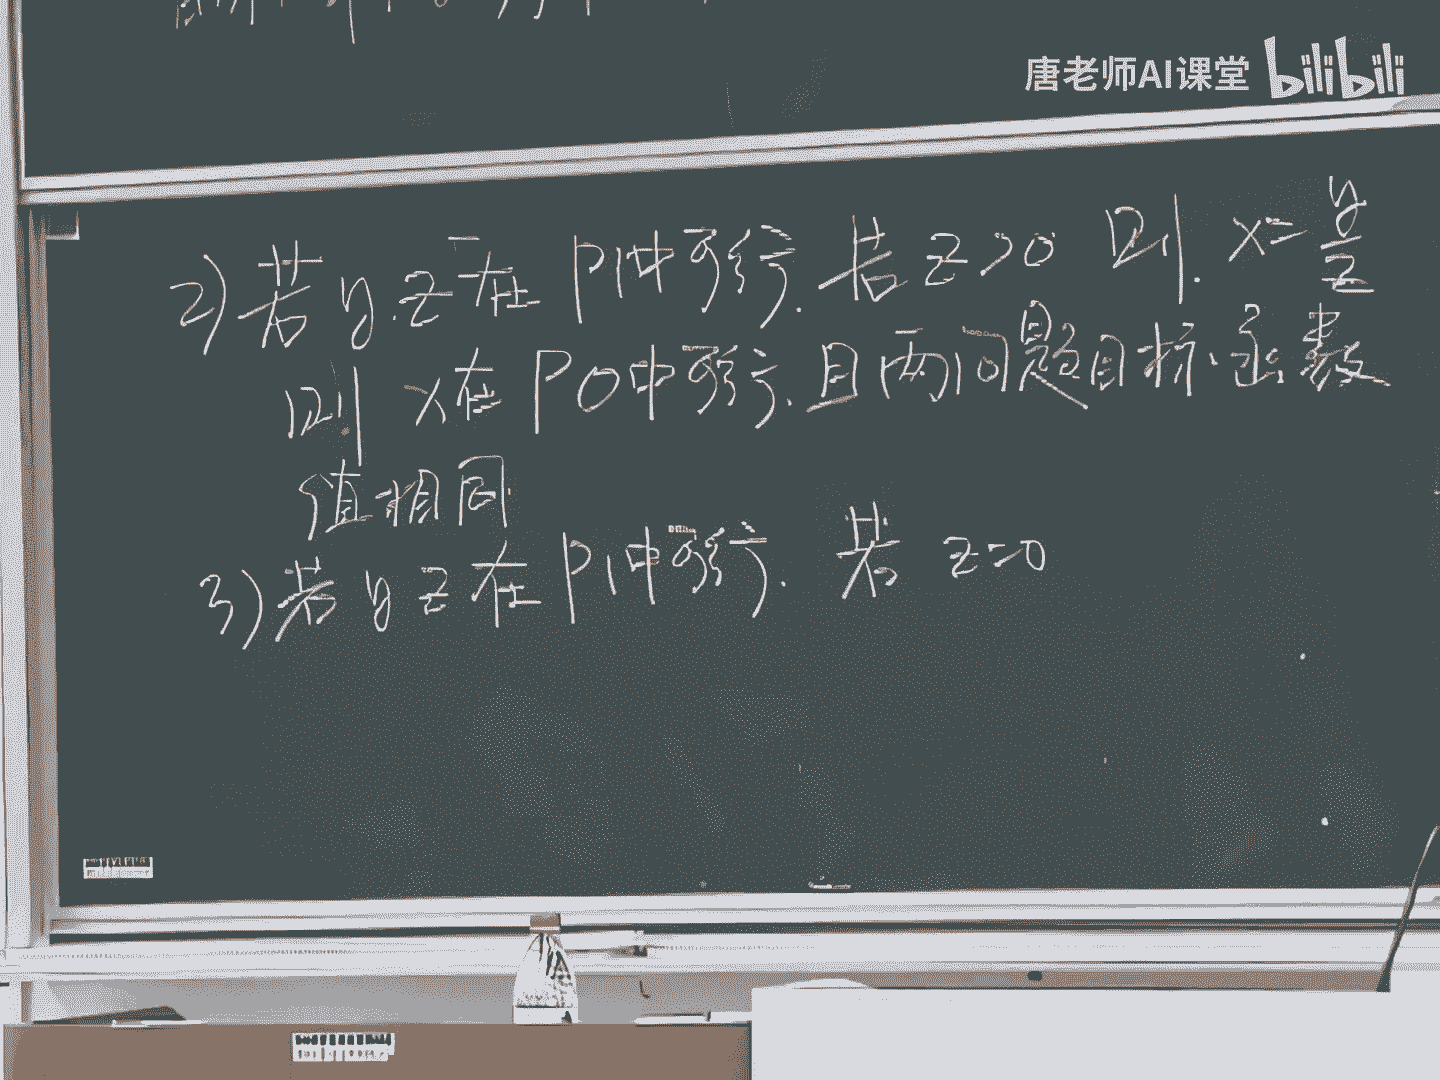 唐老师AI课堂 bilibili
2) 若 y.z 在 P1中可行. 若 z>0 则. x=y/z
则 x在 P0中可行. 且两问题目标函数
值相同
3) 若 y z 在 P1中可行. 若 z=0